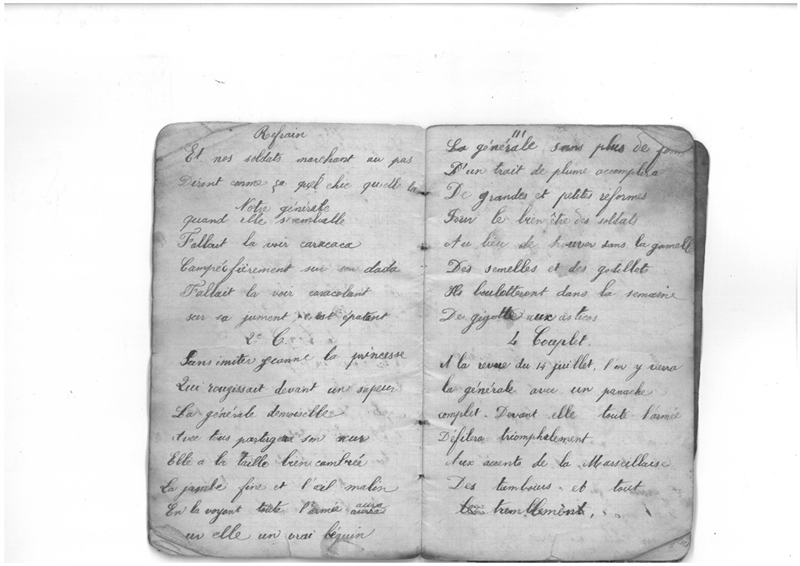 Refrain
Et nos soldats marchant au pas
Diront comme ça quel chic qu'elle a
Notre générale
quand elle
Fallait la voir caracaca
Campée fièrement sur son dada
Fallait la voir caracolant
sur sa jument c'est épatant
2e C.
Sans imiter jeanne la princesse
Qui rougissait devant un sapeur
La générale demoiselle
Avec tous partagera son cœur
Elle a la taille bien cambrée
La jambe fine et l'œil malin
En la voyant toute l'armée aura
un vrai béguin
III
La générale sans plus de
D'un trait de plume accomplira
De grandes et petites reformes
Pour le bien être des soldats
Au lieu de trouver dans la gamelle
Des semelles et des godillots
Ils boulotteront dans la semaine
Des gigots aux
4 Couplet.
A la revue du 14 juillet, l'on y verra
la générale avec un panache
complet. Devant elle toute l'armée
Défilera triomphalement
Aux accents de la Marseillaise
Des tambours et tout
tremblement.